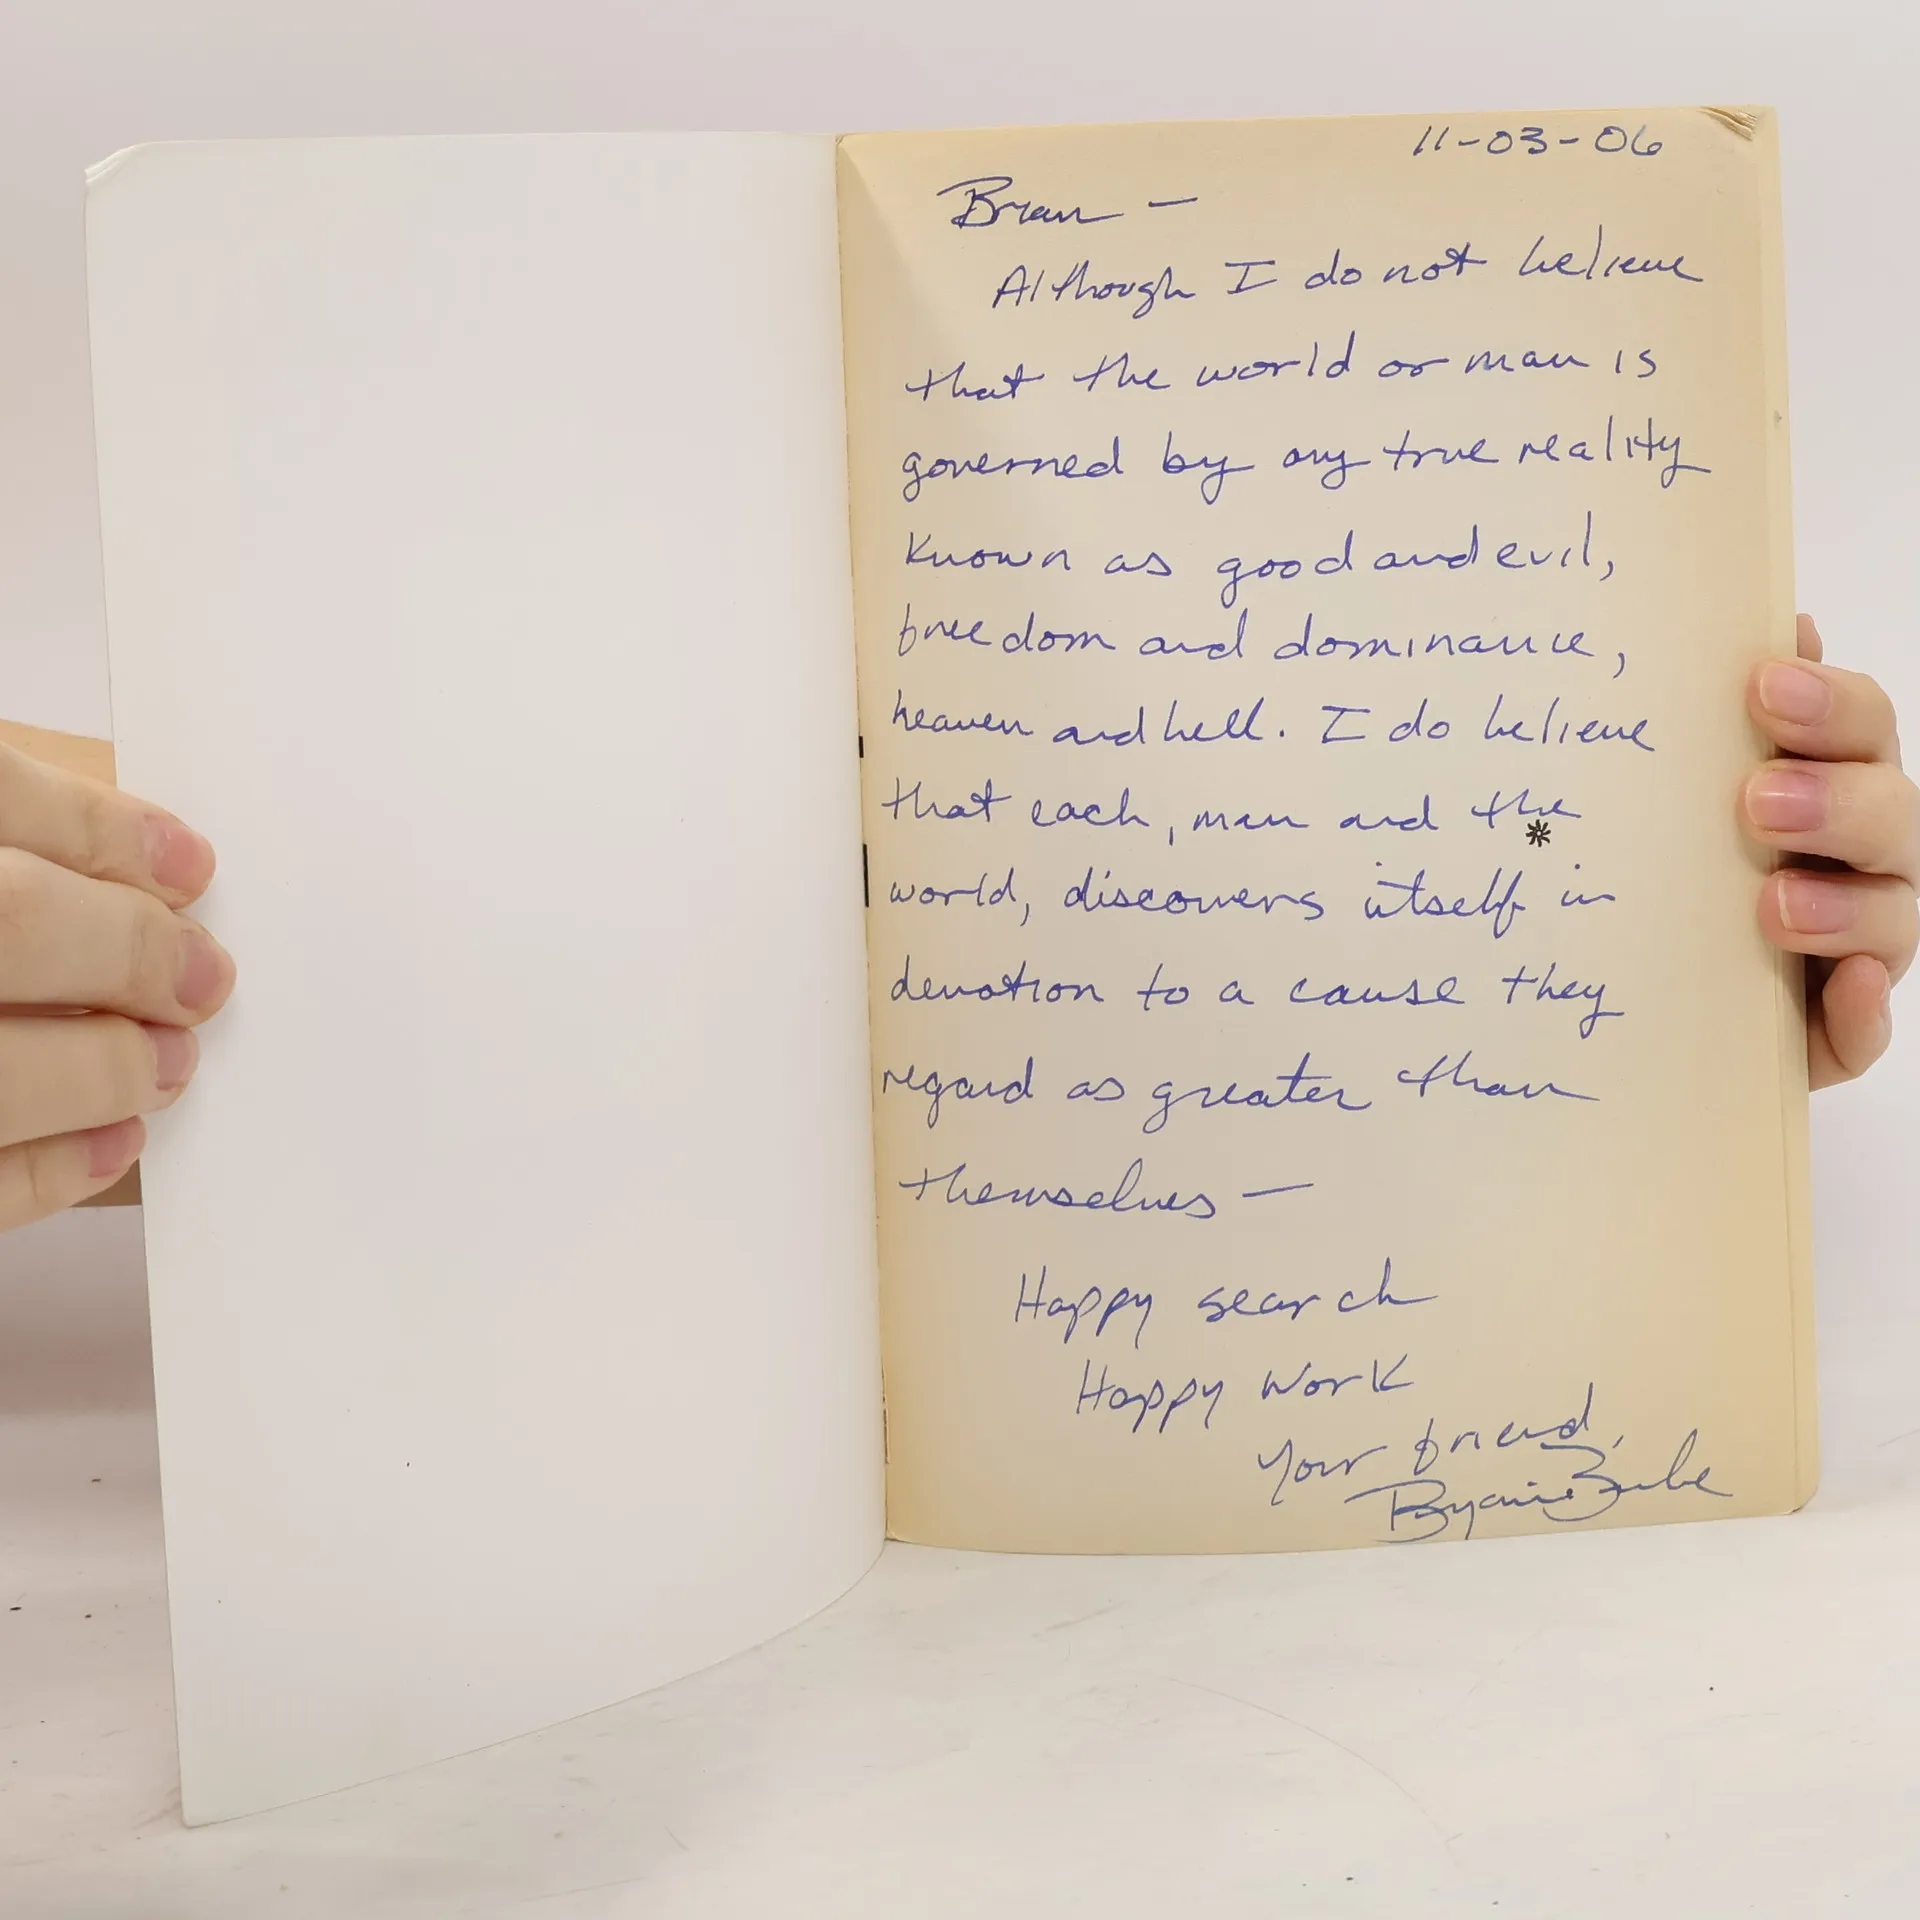 11-03-06
Brian —
Although I do not believe
that the world or man is
governed by any true reality
known as good and evil,
freedom and dominance,
heaven and hell. I do believe
that each, man and the
world, discovers itself in
devotion to a cause they
regard as greater than
themselves —
Happy search
Happy Work
Your friend,